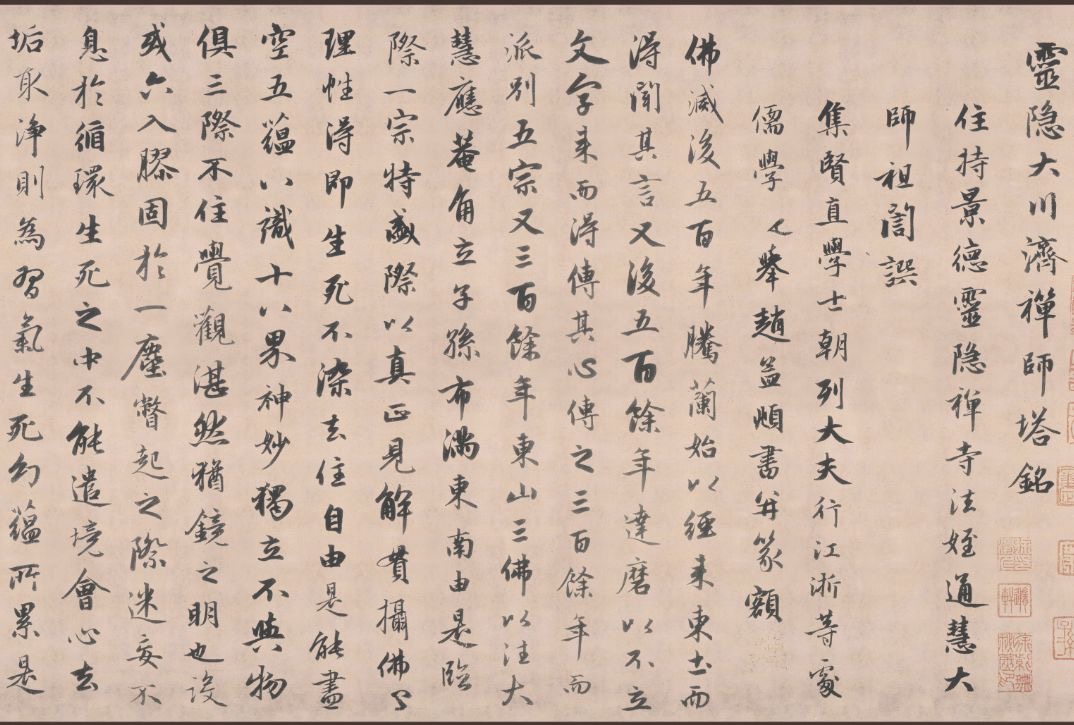 靈隐大川濟禪師塔銘
住持景德靈隐禅寺法姪通慧大
師祖誾譔
集賢直學士朝列大夫行江浙等處
儒學〻舉趙孟頫書并篆額
佛滅後五百年騰蘭始以經来東土而
得聞其言又後五百餘年達磨以不立
文字来而得傳其心傳之三百餘年而
派别五宗又三百餘年東山三佛以法大
慧應菴角立子孫布滿東南由是臨
際一宗特盛際以真正見解貫攝佛〻
理性得即生死不染去住自由是能盡
空五蕴八識十八界神妙獨立不與物
俱三際不住覺觀湛然猶鏡之明也設
或六入膠固於一塵瞥起之際迷妄不
息於循環生死之中不能遣境會心去
垢取浄則為習氣生死幻蕴所累是